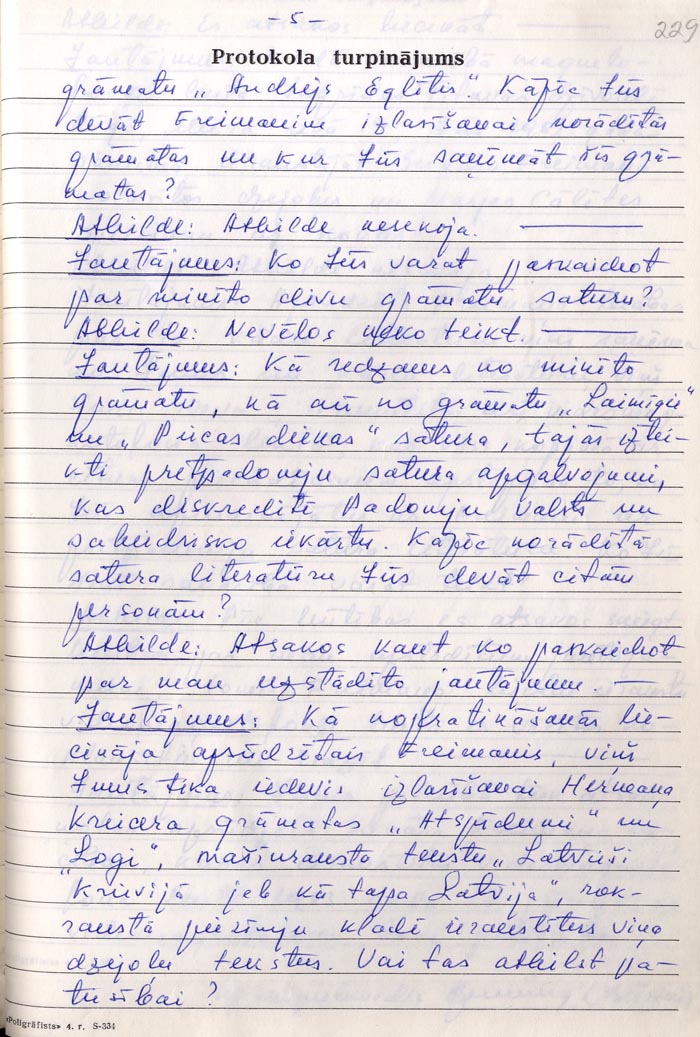 - 5 -
229
Protokola turpinājums
grāmatu „Andrejs Eglītis". Kāpēc Jūs
devāt Freimanim izlasīšanai norādītās
grāmatas un kur Jūs saņēmāt šīs grā-
matas?
Atbilde: Atbilde nesekoja. ———
Jautājums: Ko Jūs varat paskaidrot
par minēto divu grāmatu saturu?
Atbilde: Nevēlos neko teikt. ———
Jautājums: Kā redzams no minēto
grāmatu, kā arī no grāmatu „Laimīgie"
un „Pūcas dienas" satura, tajās izlei-
kti pretpadomju satura apgalvojumi,
kas diskreditē Padomju valsts un
sabiedrisko iekārtu. Kāpēc norādītā
satura literatūru Jūs devāt citām
personām?
Atbilde: Atsakos kaut ko paskaidrot
par man uzstādīto jautājumu. —
Jautājums: Kā nopratināšanās lie-
cināja apsūdzētais Freimanis, viņš
Jums tika iedevis izlasīšanai Hermaņa
Kreicera grāmatas „Atspīdumi" un
„Logi", mašīnraksta tekstu „Latvieši
Krievijā jeb kā tapa Latvija", rok-
rakstā piezīmju kladē ierakstītus viņa
dzejoļu tekstus. Vai tas atbilst pa-
tiesībai?
«Poligrāfists» 4. r. S-334